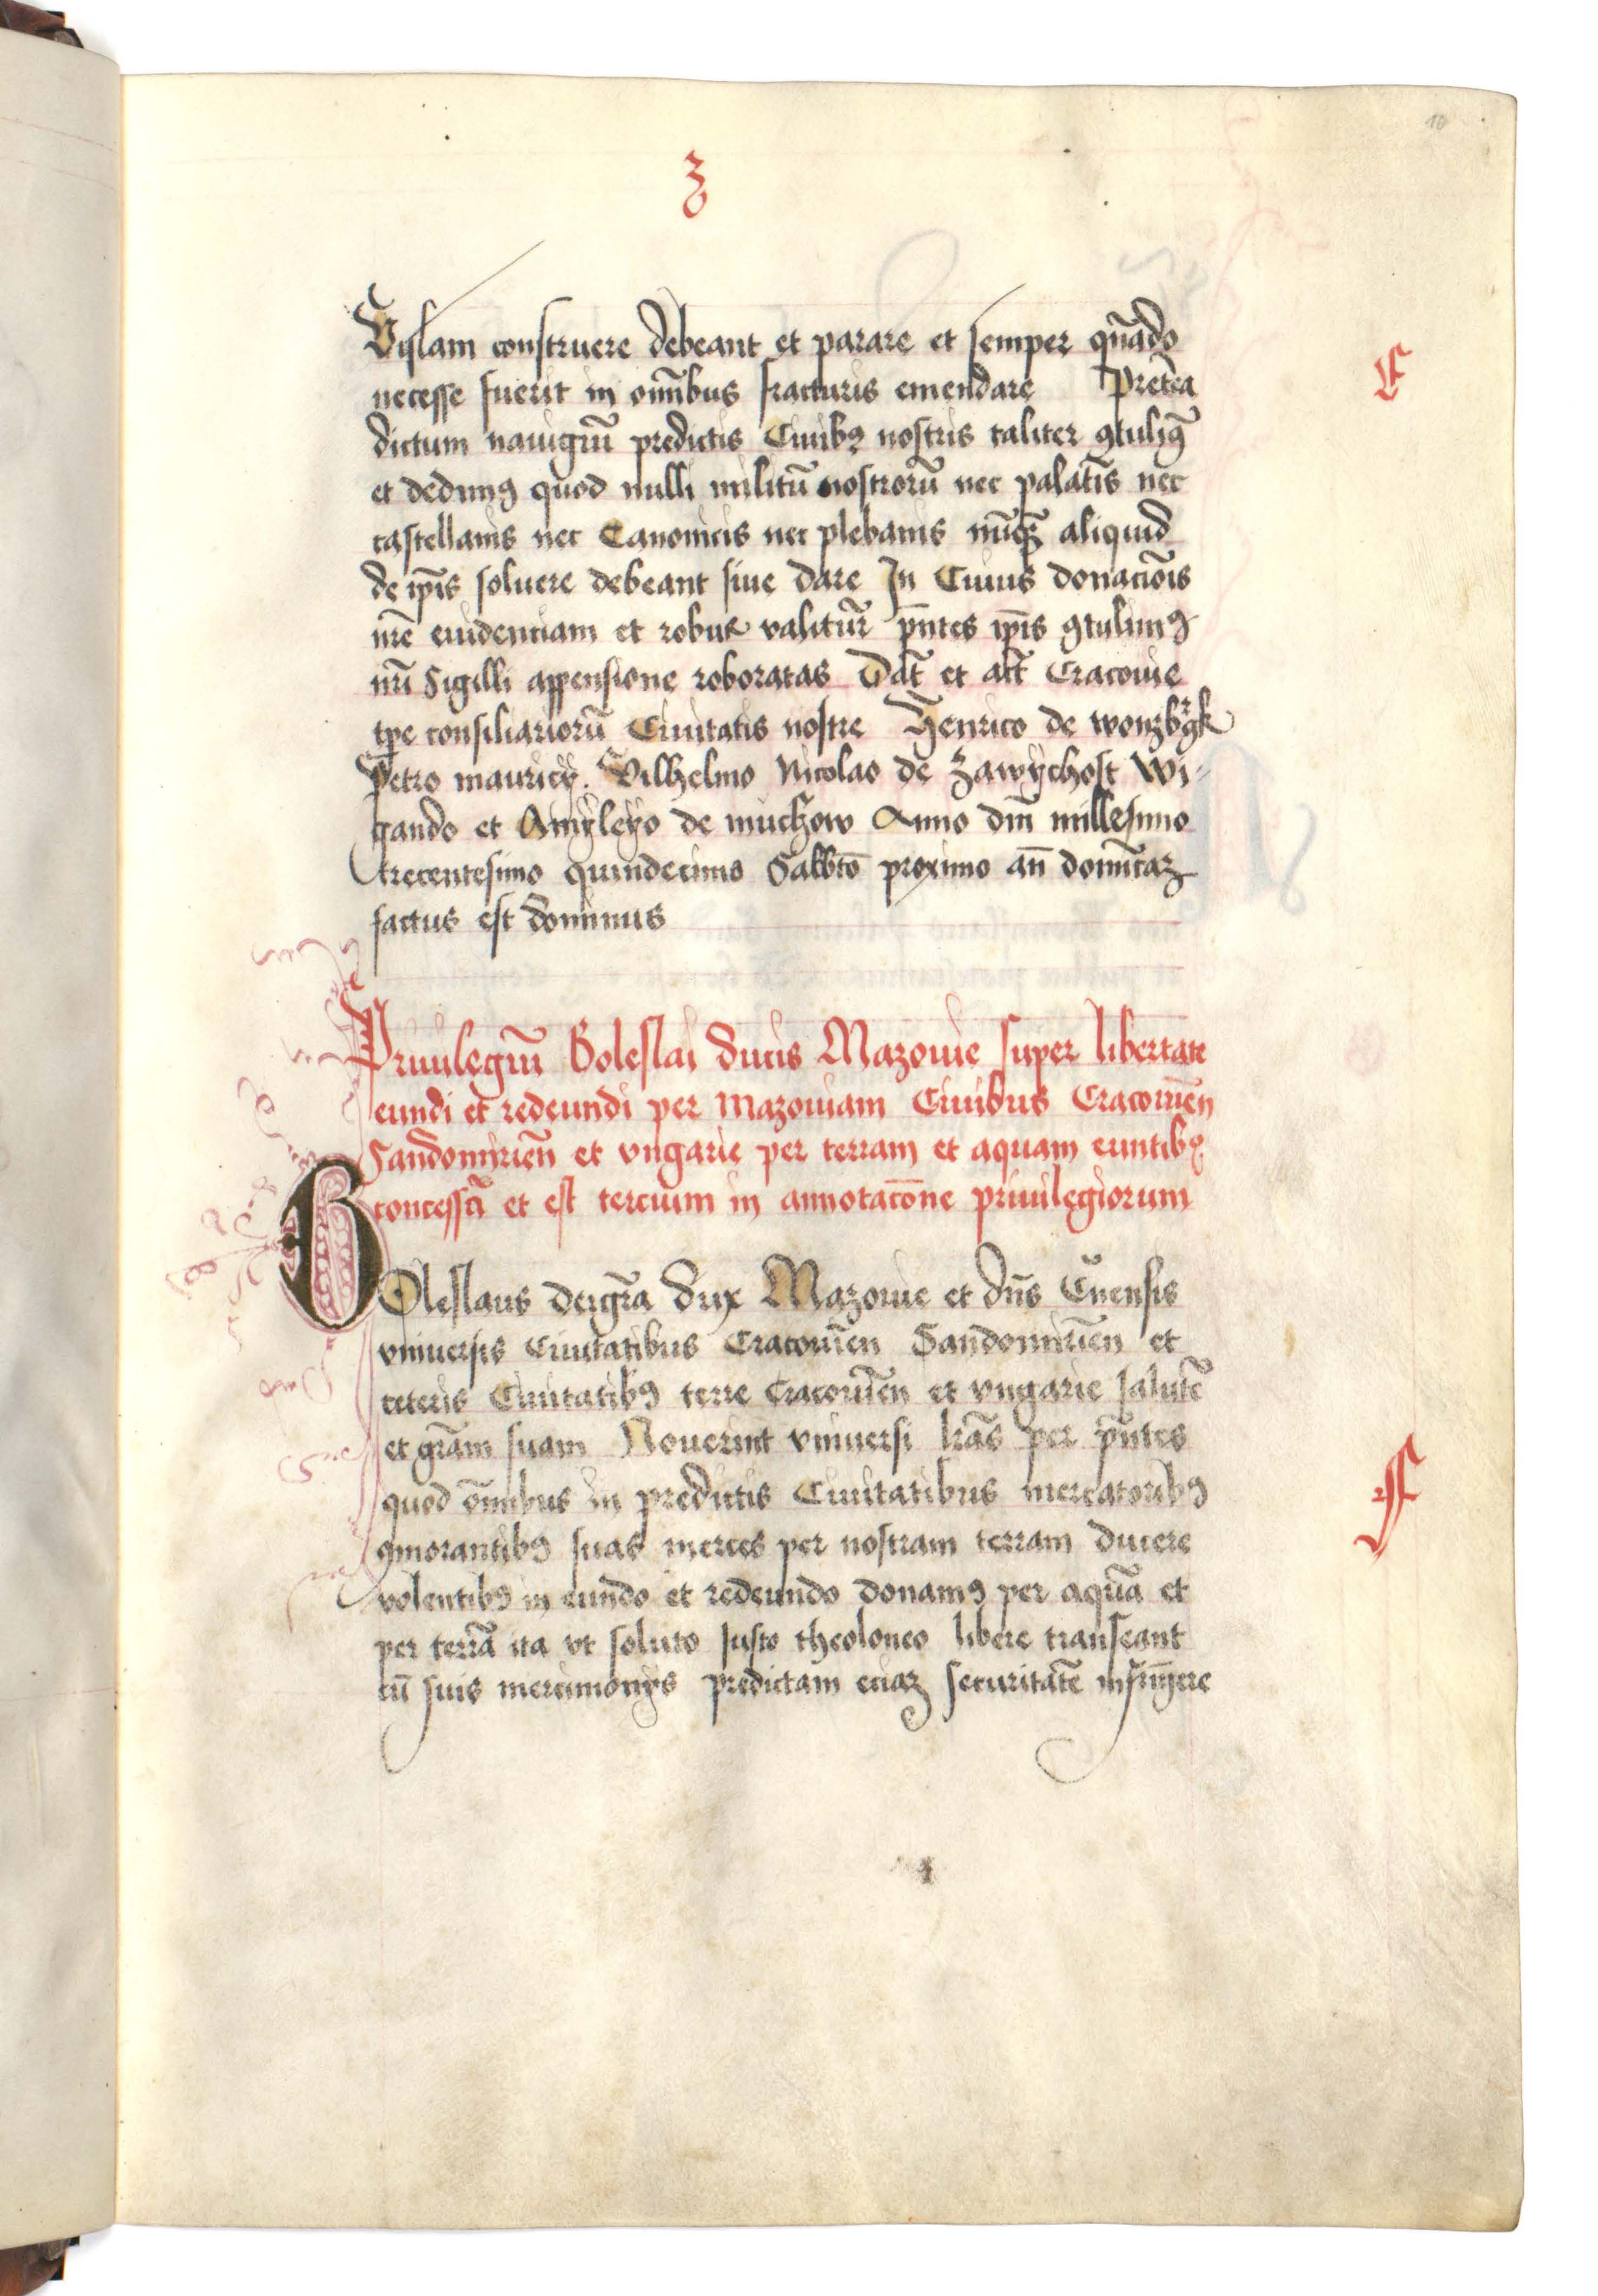 3
10
Vislam construere debeant et parare et semper qñado
necesse fuerit in om̄ibus fracturis emendare Pretea
dictum nauigiū predictis Ciuibꝫ nostris taliter ꝯtulimꝰ
et dedimꝰ quod nulli militū nostrorū nec palatīs nec
castellanis nec Canonicis nec plebanis aliquid
de ip̄is soluere debeant siue dare In Cuius donacīois
nr̄e euidenciam et robur valitur̄ p̄ntes ip̄is ꝯtulimꝰ
nr̄i Sigilli appensione roboratas Dat̄ et act̄ Cracouie
tp̄e consiliariorū Ciuitatis nostre Henrico de
Petro mauricÿ. Vilhelmo Nicolao de Zawÿchost Wi-
gando et de muchow Anno dn̄i millesimo
trecentesimo quindecimo Sabbt̄o proximo an̄ domīcaꝫ
factus est dominus
Priuilegiū Boleslai ducis Mazouie super libertate
eundi et redeundi per Mazouiam Ciuibus Cracouiēn
Sandomiriēn et vngarie per terram et aquam euntibꝫ
concessa et est tercium in annotacōne priuilegiorum
BOleslaus deigr̄a dux Mazouie et dn̄s Cn̄ensis
vniuersis Ciuitatibus Cracouiēn Sandomiriēn et
ceteris Ciuitatibꝰ terre Cracouiēn et vngarie salutē
et gr̄am suam Nouerint vniuersi lr̄as per p̄ntes
quod om̄ibus in predictis Ciuitatibus mercatoribꝰ
ꝯmorantibꝰ suas merces per nostram terram ducere
volentibꝰ in eundo et redeundo donamꝰ per aquā et
per terrā ita vt soluto Justo theoloneo libere transeant
cū suis mercimonÿs predictam eciaꝫ securitatē infrin̄gere